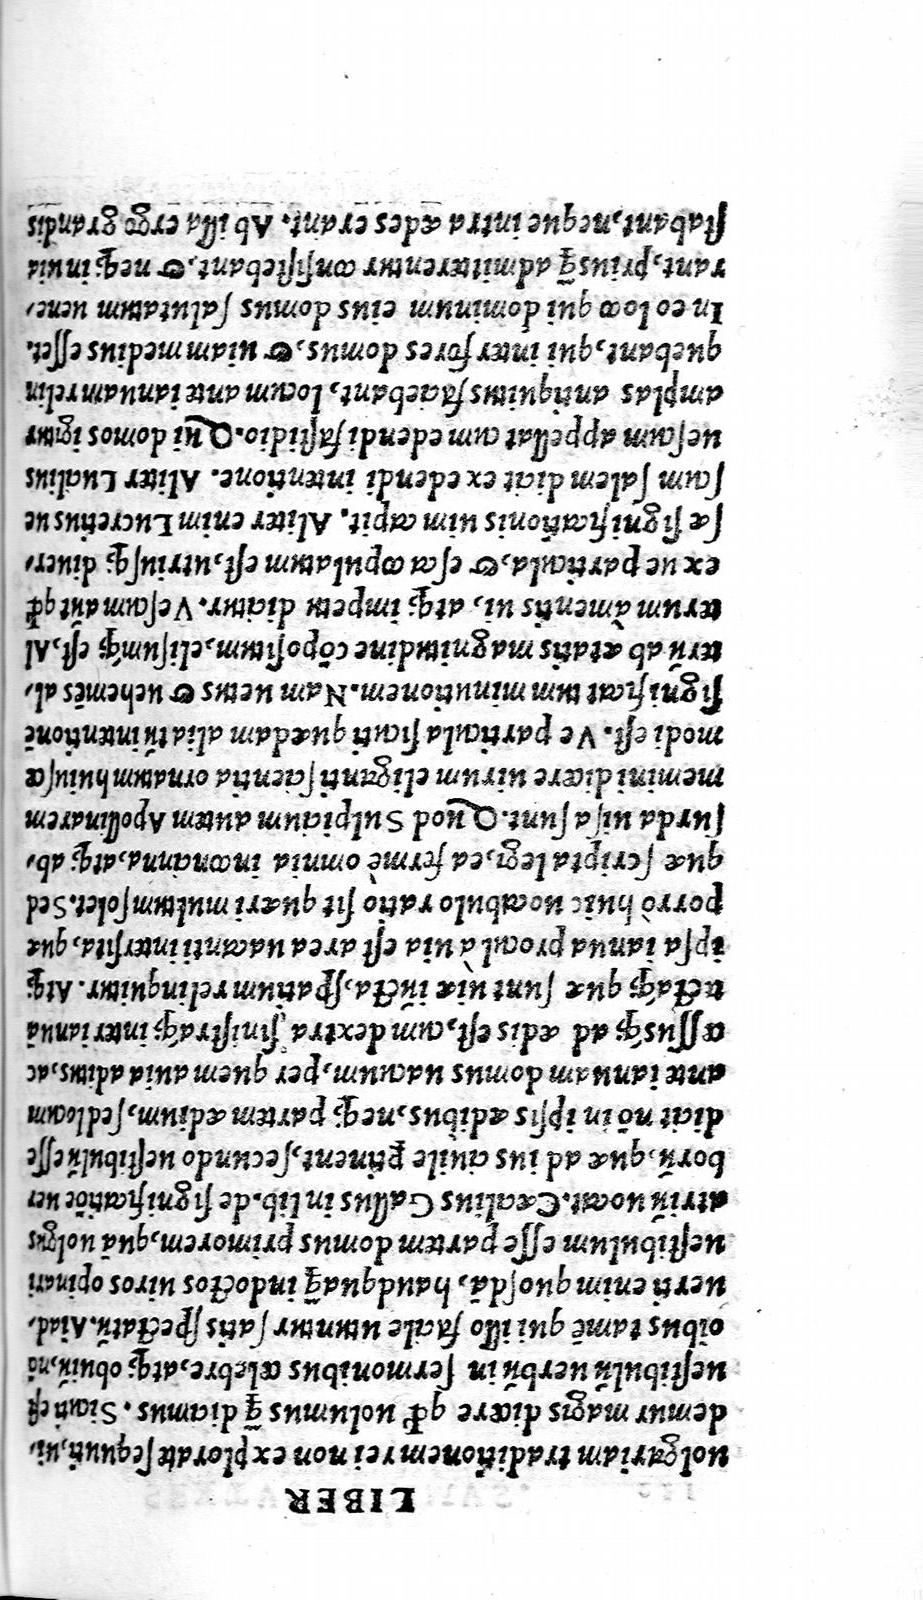 LIBER
uolgariam traditionem rei non exploratæ sequuti, ui,
demur magis dicere qđ uolumus q̃ diamus. Sicuti est
uestibulũ uerbũ in sermonibus celebre, atq; obuiũ, nõ
oĩbus tamẽ qui illo facile utuntur satis spectatũ. Aiad,
uerti enim quosdã, haudquaq̃ indoctos uiros opinari
uestibulum esse partem domus primorem, quã uolgus
atriũ uocat. Cæcilius Gallus in lib. de significatiõe uer
borũ, quæ ad ius ciuile ptinent, secundo uestibulũ esse
dicit nõ in ipsis ædibus, neq; partem ædium, sed locum
ante ianuam domus uacuum, per quem a uia aditus, ac
cessusq; ad ædis est, cum dextra sinistraq; inter ianuã
tectaq; quæ sunt uiæ iũcta, spatium relinquitur. Atq;
ipsa ianua procul a uia est area uacanti intersita, quæ
porrò huic uocabulo ratio sit quæri multum solet. Sed
quæ scripta legi, ea fermè omnia inconcinna, atq; ab,
surda uisa sunt. Quod Sulpicium autem Apollinarem
memini dicere uirum eliganti scientia ornatum huiuscæ
modi est. Ve particula sicuti quædam alia tũ intentionẽ
significat tum minutionem. Nam uetus & uehemẽs al,
terũ ab ætatis magnitudine cõpositum, elisumq; est, Al
terum à mentis ui, atq; impetu dicitur. Vescum aũt qđ
ex ue particula, & esca copulatum est, utriusq; diuer,
sæ significationis uim capit. Aliter enim Lucretius ue
scum salem dicit ex edendi intentione. Aliter Lucilius
uescum appellat cum edendi fastidio. Qui domos igitur
amplas antiquitus faciebant, locum ante ianuam relin
quebant, qui inter fores domus, & uiam medius esset.
In eo loco qui dominum eius domus salutatum uene,
rant, prius q̃ admitterentur consistebant, & neq; in uia
stabant, neque intra ædes erant. Ab illa ergo grandis